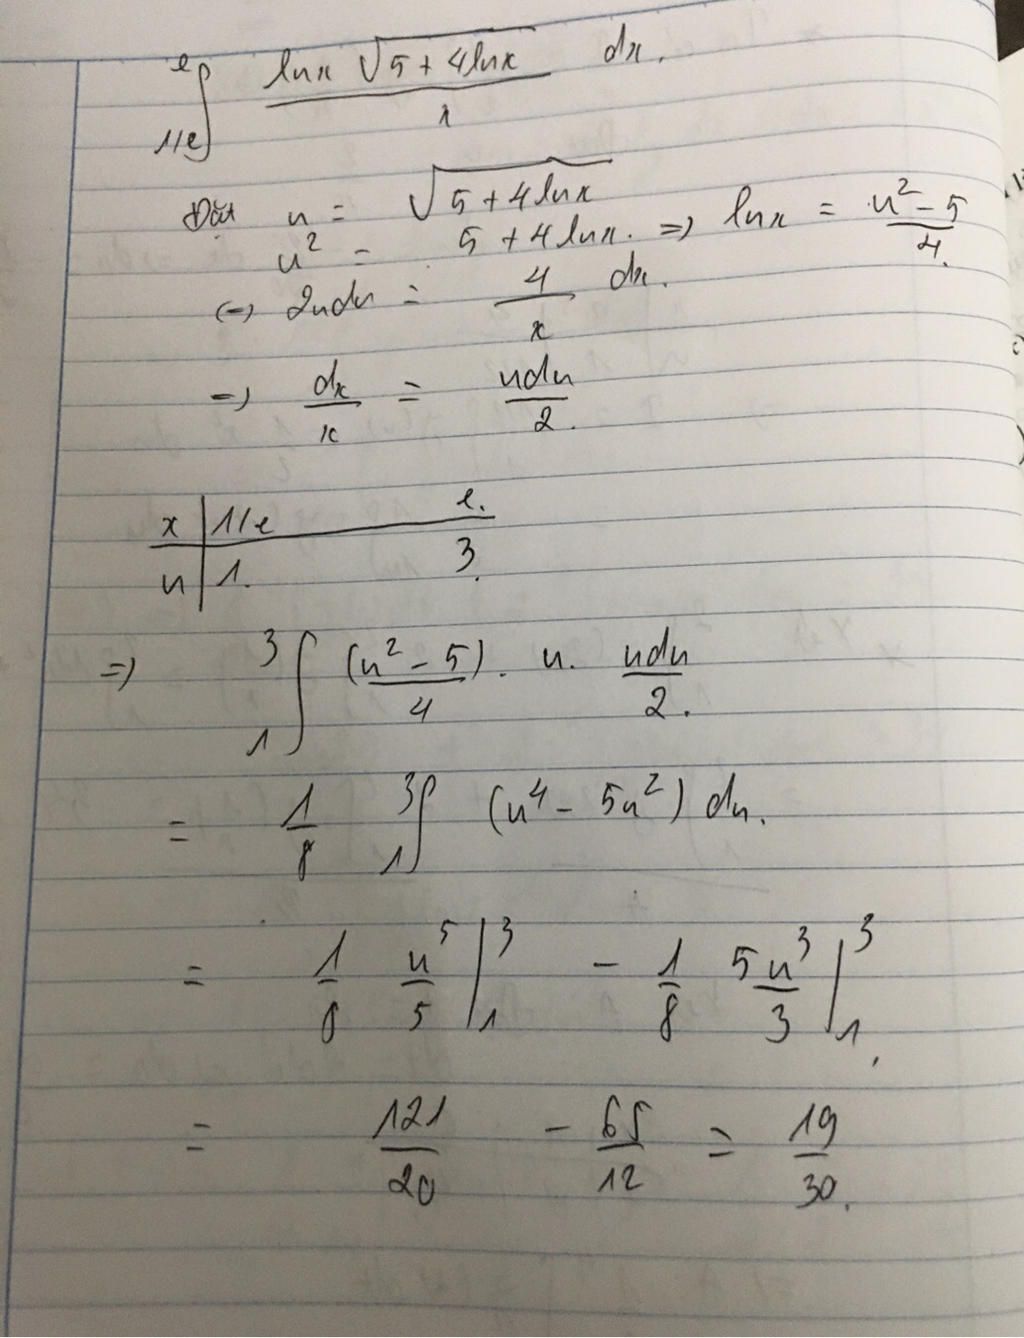 ∫_{1/e}^{e} (lnx √(5+4lnx))/x dx.
Đặt u = √(5+4lnx)
u² = 5+4lnx. => lnx = (u²-5)/4.
(=) 2udu = 4/x dx.
=) dx/x = udu/2.
x | 1/e e.
u | 1. 3.
=) ∫_{1}^{3} (u²-5)/4 . u. udu/2.
= 1/8 ∫_{1}^{3} (u⁴ - 5u²) du.
= 1/8 u⁵/5 |_{1}^{3} - 1/8 5u³/3 |_{1}^{3}.
= 121/20 - 65/12 = 19/30.